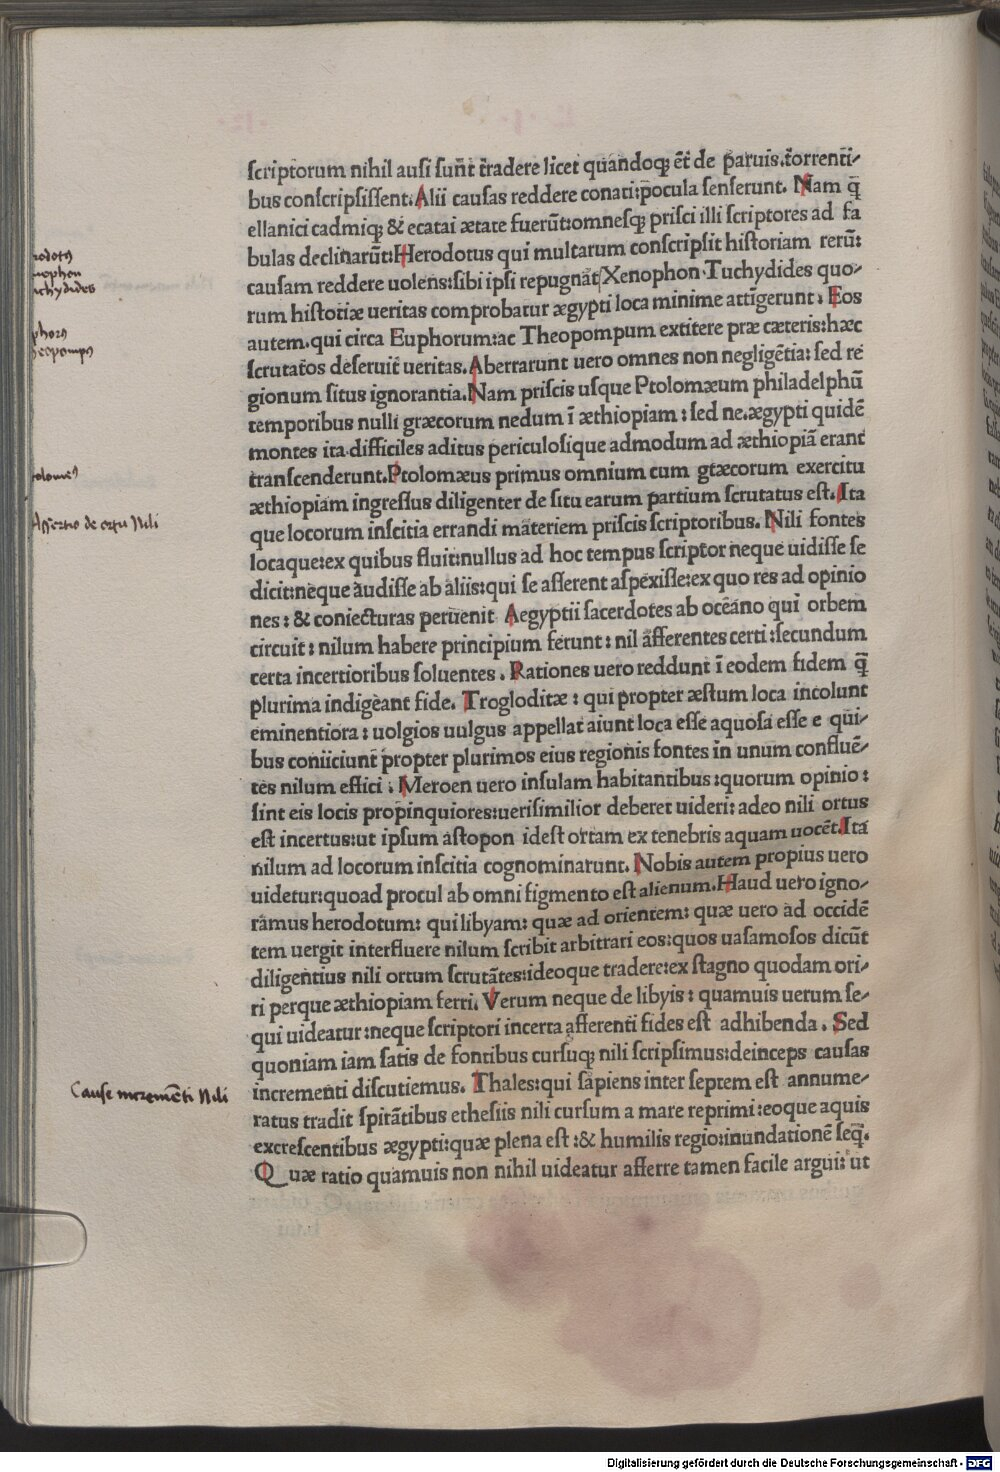 scriptorum nihil ausi sunt tradere licet quandoqꝫ et̃ de paruis.torrenti-
bus conscripsissent.Alii causas reddere conati:pocula senserunt. Nam q̃
ellanici cadmiqꝫ & ecatai ætate fuerũt:omnesqꝫ prisci illi scriptores ad fa
bulas declinarũt:Herodotus qui multarum conscripsit historiam rerũ:
causam reddere uolens:sibi ipsi repugnãt Xenophon Tuchydides quo-
rum histotiæ ueritas comprobatur ægypti loca minime attĩgerunt: Eos
autem.qui circa Euphorum:ac Theopompum extitere præ cæteris:hæc
scrutatos deseruit ueritas.Aberrarunt uero omnes non negligẽtia: sed re
gionum situs ignorantia.Nam priscis usque Ptolomæum philadelphũ
temporibus nulli græcorum nedum ĩ æthiopiam: sed ne.ægypti quidẽ
montes ita.difficiles aditus periculosique admodum ad æthiopiã erant
transcenderunt.Ptolomæus primus omnium cum gtæcorum exercitu
æthiopiam ingressus diligenter de situ earum partium scrutatus est.Ita
que locorum inscitia errandi materiem priscis scriptoribus. Nili fontes
locaque:ex quibus fluit:nullus ad hoc tempus scriptor neque uidisse se
dicit:neque audisse ab aliis:qui se asserent aspexisse:ex quo res ad opinio
nes: & coniecturas peruenit Aegyptii sacerdotes ab oceano qui orbem
circuit: nilum habere principium ferunt: nil afferentes certi:secundum
certa incertioribus soluentes. Rationes uero reddunt ĩ eodem fidem q̃
plurima indigeant fide. Trogloditæ: qui propter æstum loca incolunt
eminentiora: uolgios uulgus appellat aiunt loca esse aquosa esse e qui-
bus coniiciunt propter plurimos eius regionis fontes in unum confluẽ-
tes nilum effici: Meroen uero insulam habitantibus:quorum opinio:
sint eis locis propinquiores:uerisimilior deberet uideri: adeo nili ortus
est incertus:ut ipsum astopon idest ortam ex tenebris aquam uocẽt.Ita
nilum ad locorum inscitia cognominarunt. Nobis autem propius uero
uidetur:quoad procul ab omni figmento est alienum.Haud uero igno-
ramus herodotum: qui libyam: quæ ad orientem: quæ uero ad occidẽ
tem uergit interfluere nilum scribit arbitrari eos:quos uasamosos dicũt
diligentius nili ortum scrutãtes:ideoque tradere:ex stagno quodam ori-
ri perque æthiopiam ferri. Verum neque de libyis: quamuis uerum se-
qui uideatur:neque scriptori incerta afferenti fides est adhibenda. Sed
quoniam iam satis de fontibus cursuqꝫ nili scripsimus:deinceps causas
incrementi discutiemus. Thales:qui sapiens inter septem est annume-
ratus tradit spirãtibus ethesiis nili cursum a mare reprimi:eoque aquis
excrescentibus ægypti:quæ plena est:& humilis regio:inundationẽ seq̃.
Quæ ratio quamuis non nihil uideatur afferre tamen facile argui: ut
rodotꝰ
nophon
uchydides
phorꝰ
heopompꝰ
tolomeꝰ
Assertio de ortu Nili
Cause incremẽti Nili
Digitalisierung gefördert durch die Deutsche Forschungsgemeinschaft - DFG